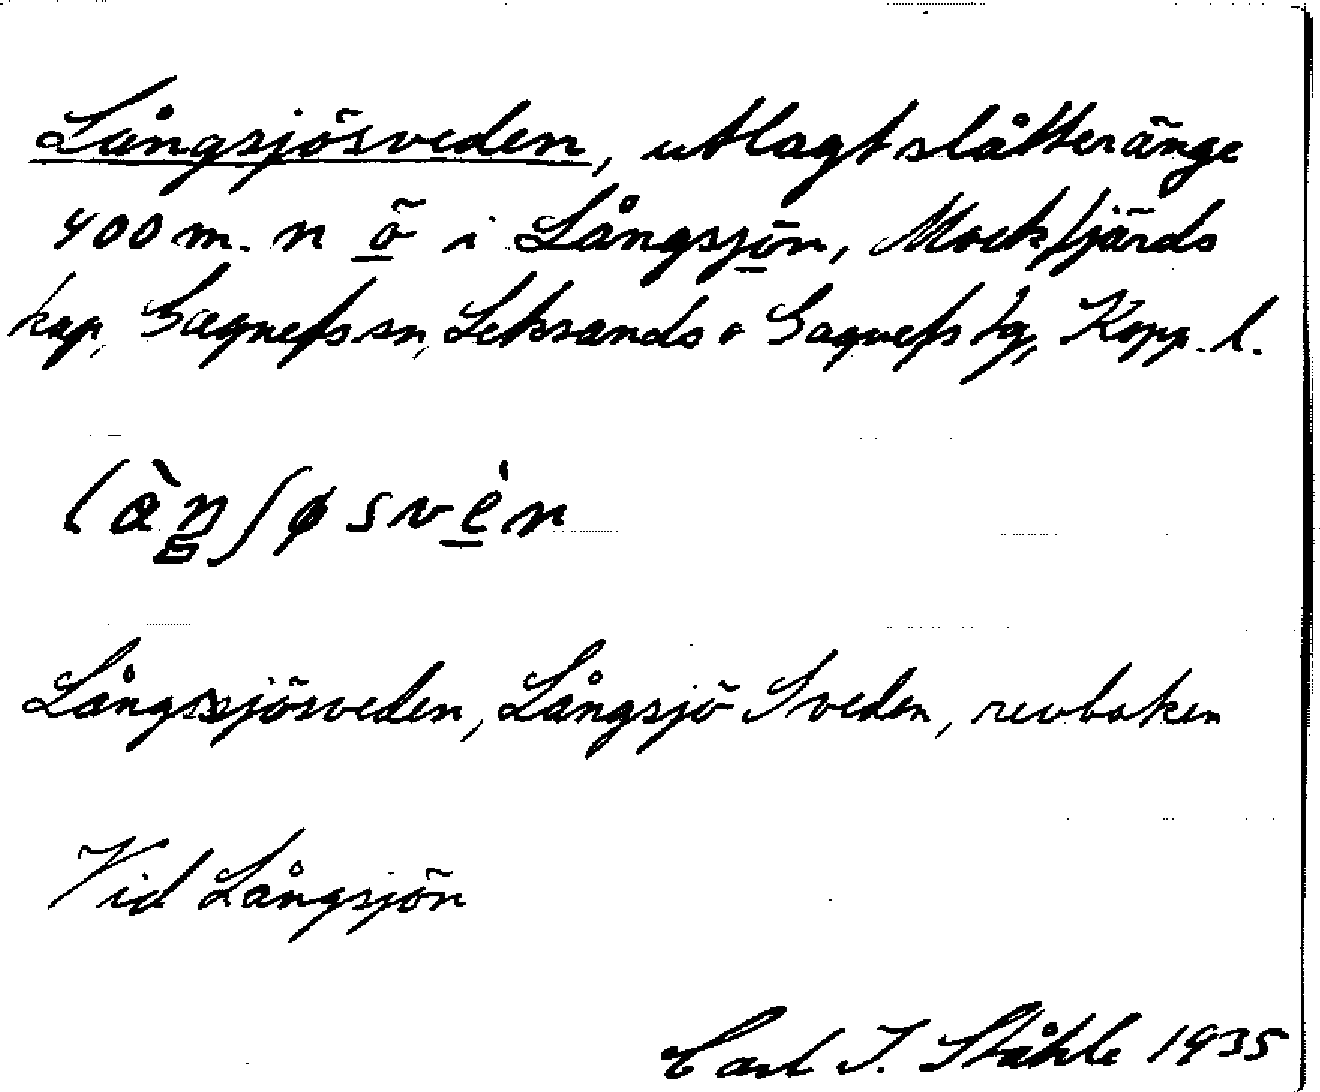 Långsjösveden, utlagt slåtteränge
400 m. n ö i Långsjön, Mockfjärds
kap, Gagnefs sn, Leksands o Gagnefs tg, Kopp. l.
Långssjösveden, Långsjö Sveden, revboken
Vid Långsjön
Carl I. Ståhle 1935